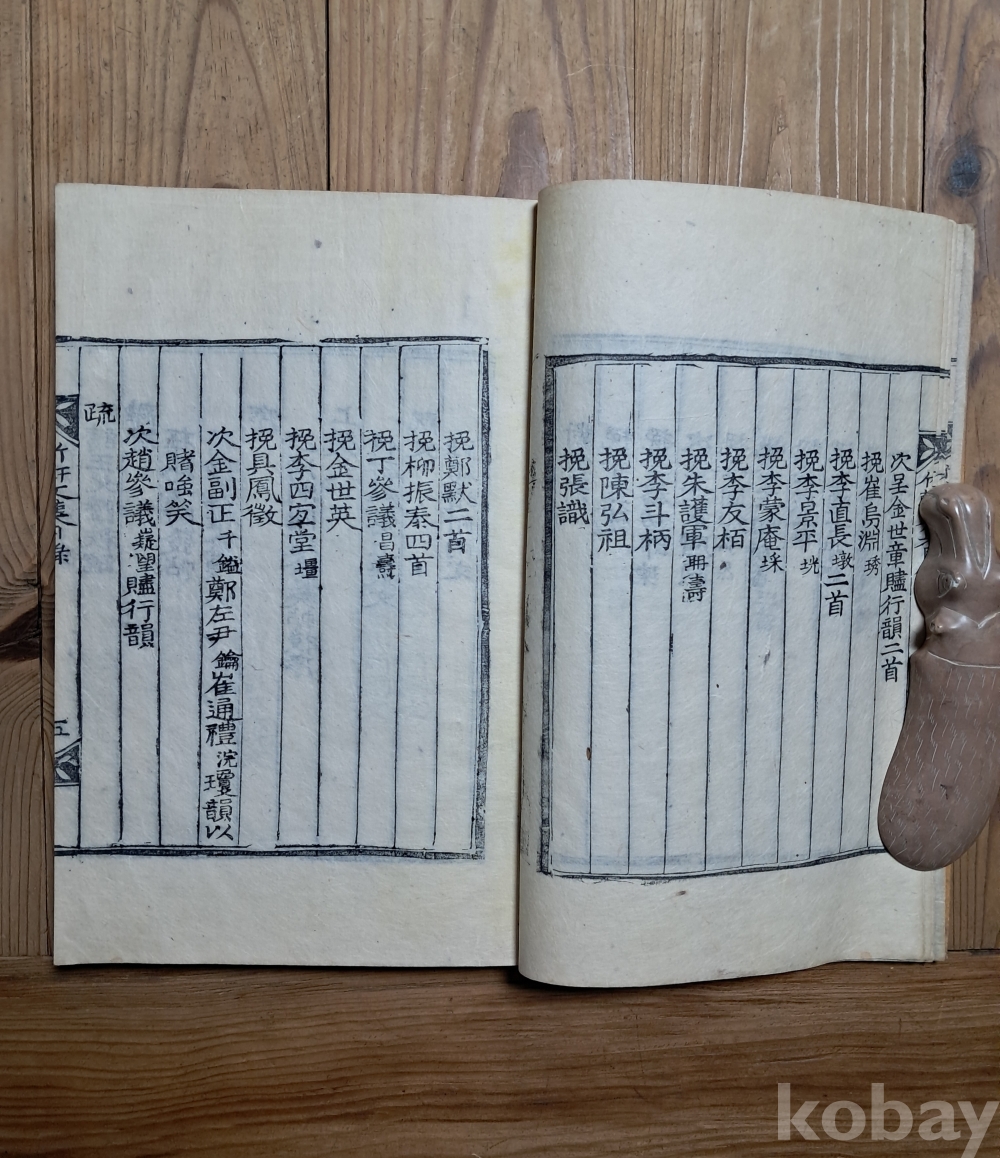 次呈金世章贐行韻二首
挽崔烏淵琇
挽李直長墩二首
挽李景平垙
挽李蒙庵埰
挽李友栢
挽朱護軍冊濤
挽李斗柄
挽陳弘祖
挽張識
挽鄭默二首
挽柳振泰四首
挽丁參議昌燾
挽金世英
挽李四宜堂壃
挽具鳳徵
次金副正千鎰鄭左尹鑰崔通禮浣瓊韻以
賭嗤笑
次趙參議嶷望贐行韻
疏
竹軒集目錄
五
kobay